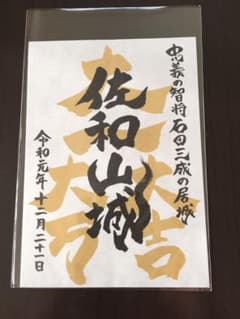 忠義の智将石田三成の居城
佐和山城
令和元年十二月二十一日
大一大万大吉